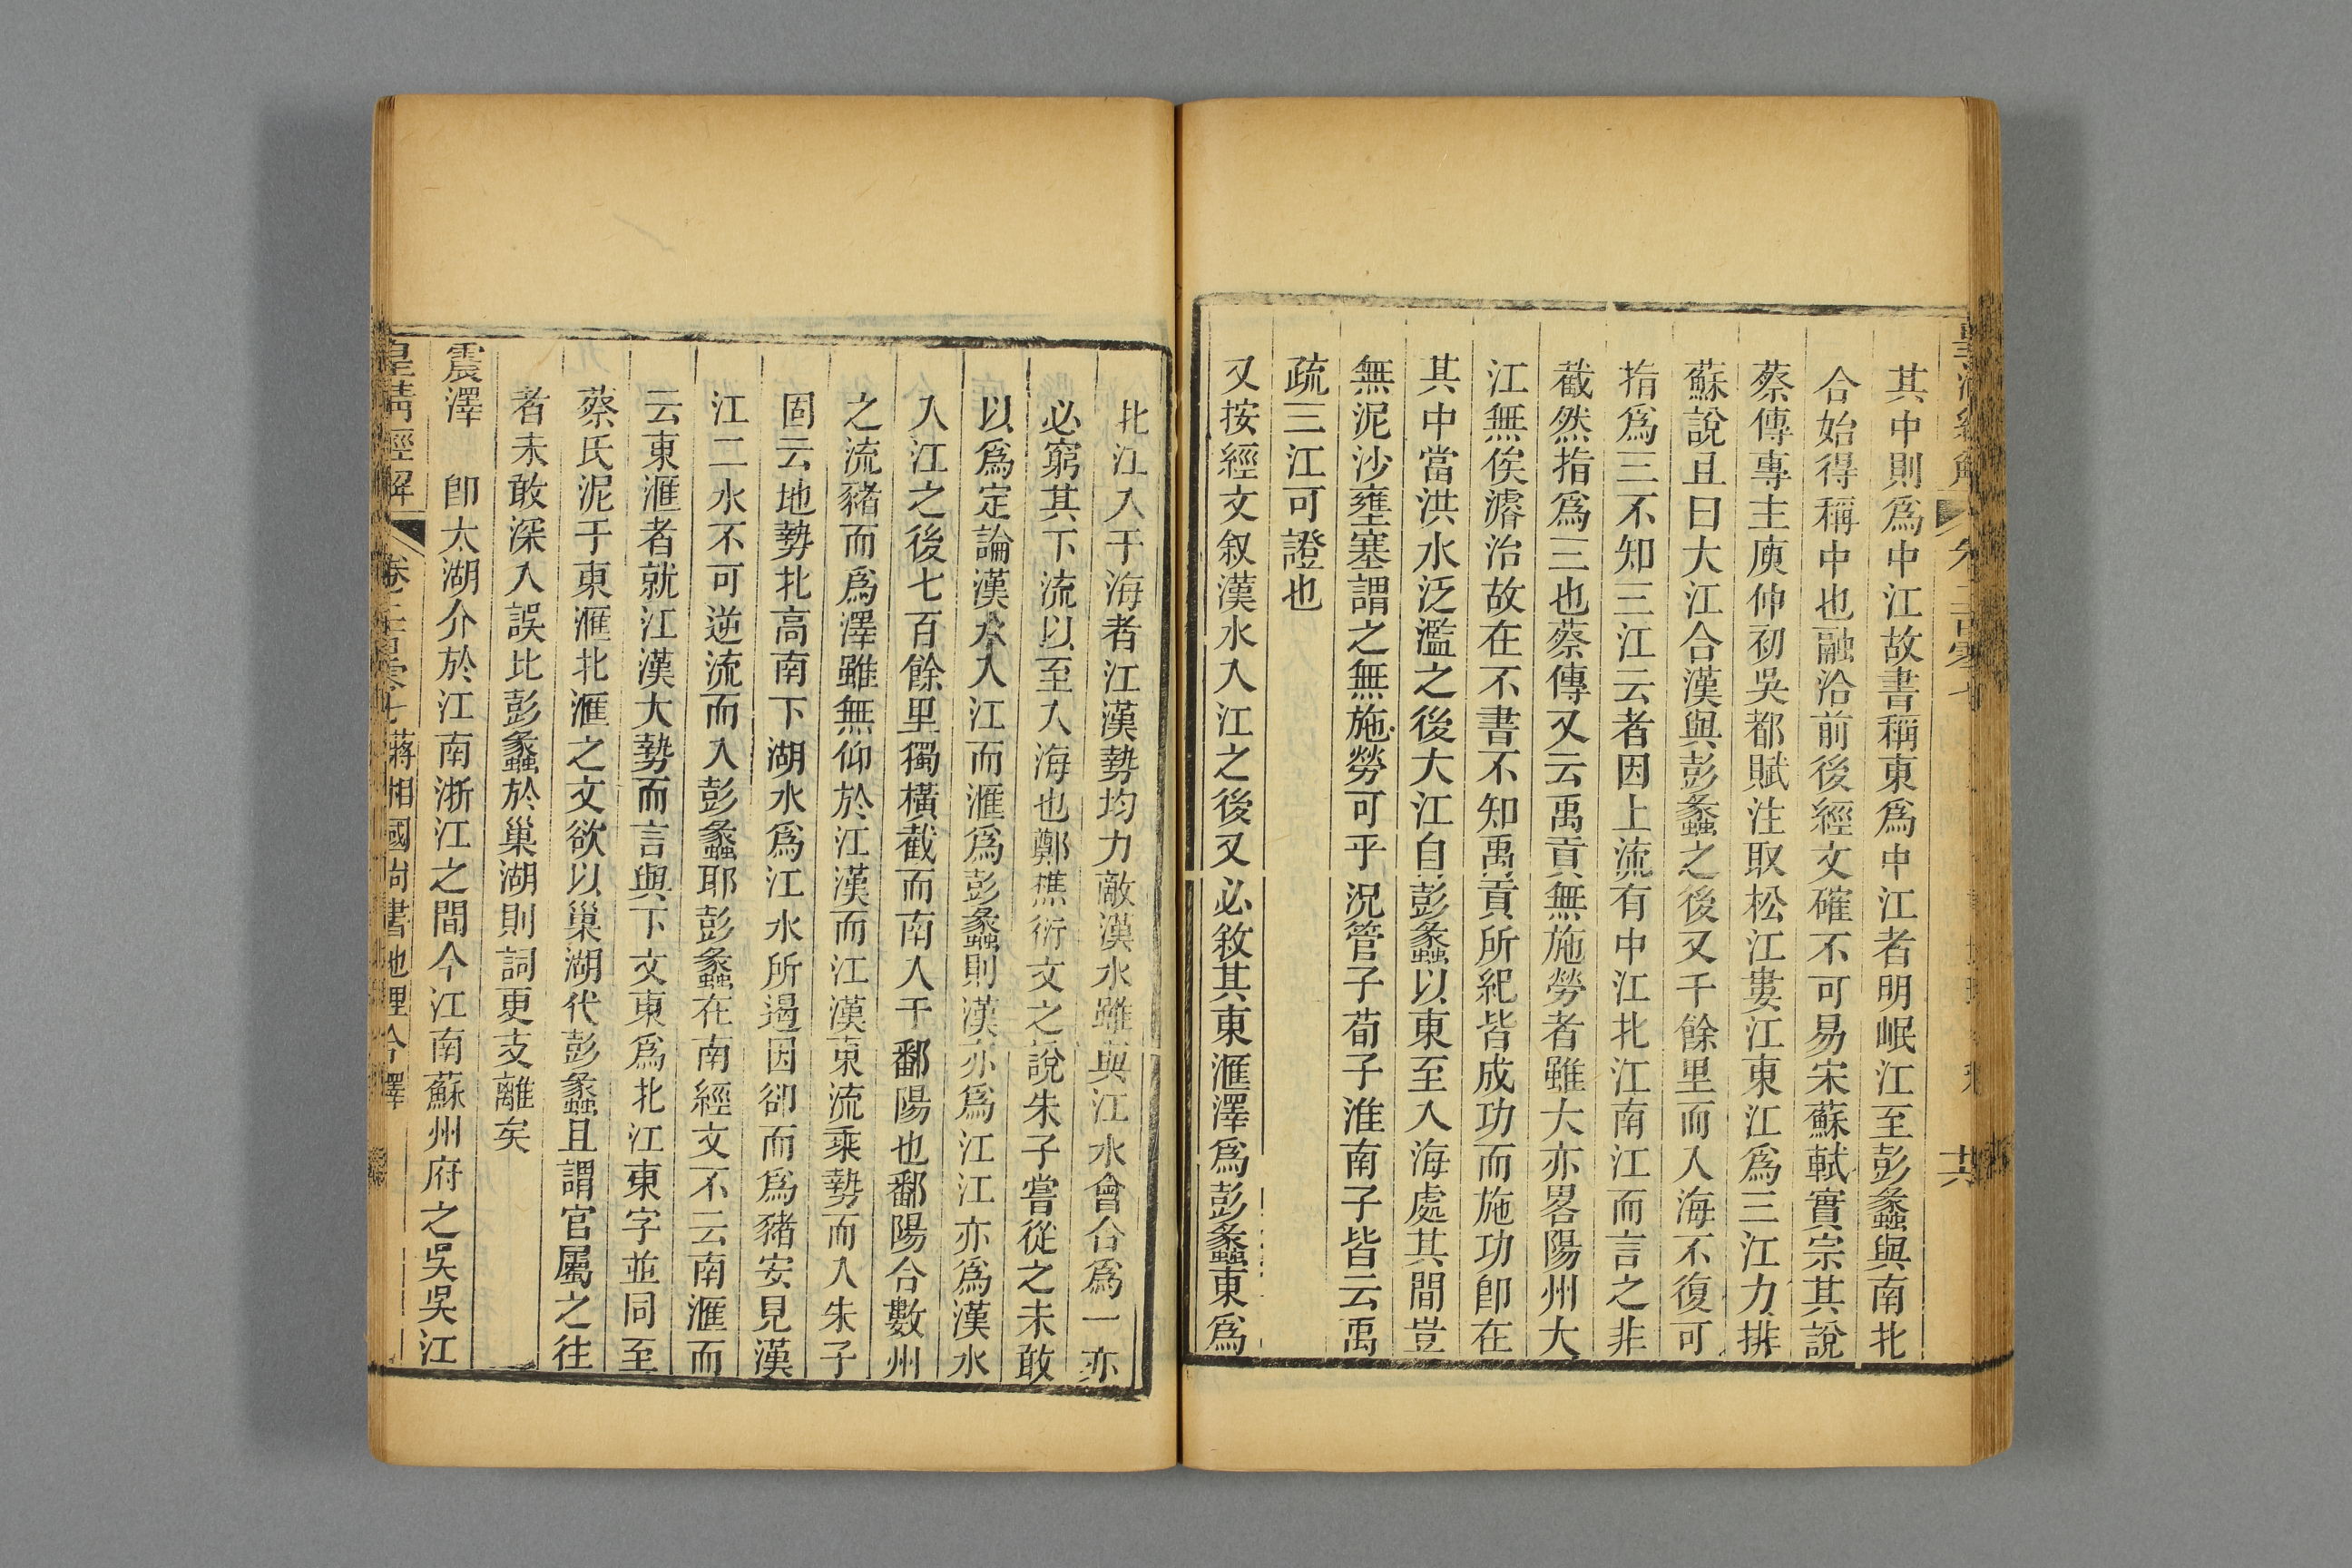 其中則爲中江故書稱東爲中江者明岷江至彭蠡與南北
合始得稱中也融洽前後經文確不可易宋蘇軾實宗其說
蔡傳專主庾仲初吳都賦注取松江婁江東江爲三江力排
蘇說且曰大江合漢與彭蠡之後又千餘里而入海不復可
指爲三不知三江云者因上流有中江北江南江而言之非
截然指爲三也蔡傳又云禹貢無施勞者雖大亦畧陽州大
江無俟濬治故在不書不知禹貢所紀皆成功而施功卽在
其中當洪水泛濫之後大江自彭蠡以東至入海處其間豈
無泥沙壅塞謂之無施勞可乎況管子荀子淮南子皆云禹
疏三江可證也
又按經文叙漢水入江之後又必敘其東滙澤爲彭蠡東爲
北江入于海者江漢勢均力敵漢水雖與江水會合爲一亦
必窮其下流以至入海也鄭樵衍文之說朱子嘗從之未敢
以爲定論漢水入江而滙爲彭蠡則漢亦爲江江亦爲漢水
入江之後七百餘里獨橫截而南入于鄱陽也鄱陽合數州
之流豬而爲澤雖無仰於江漢而江漢東流乘勢而入朱子
固云地勢北高南下湖水爲江水所遏因卻而爲豬安見漢
江二水不可逆流而入彭蠡耶彭蠡在南經文不云南滙而
云東滙者就江漢大勢而言與下文東爲北江東字並同至
蔡氏泥于東滙北滙之文欲以巢湖代彭蠡且謂官屬之往
者未敢深入誤比彭蠡於巢湖則詞更支離矣
震澤　卽太湖介於江南浙江之間今江南蘇州府之吳吳江
皇清經解 卷二百零七 蔣相國尚書地理今釋